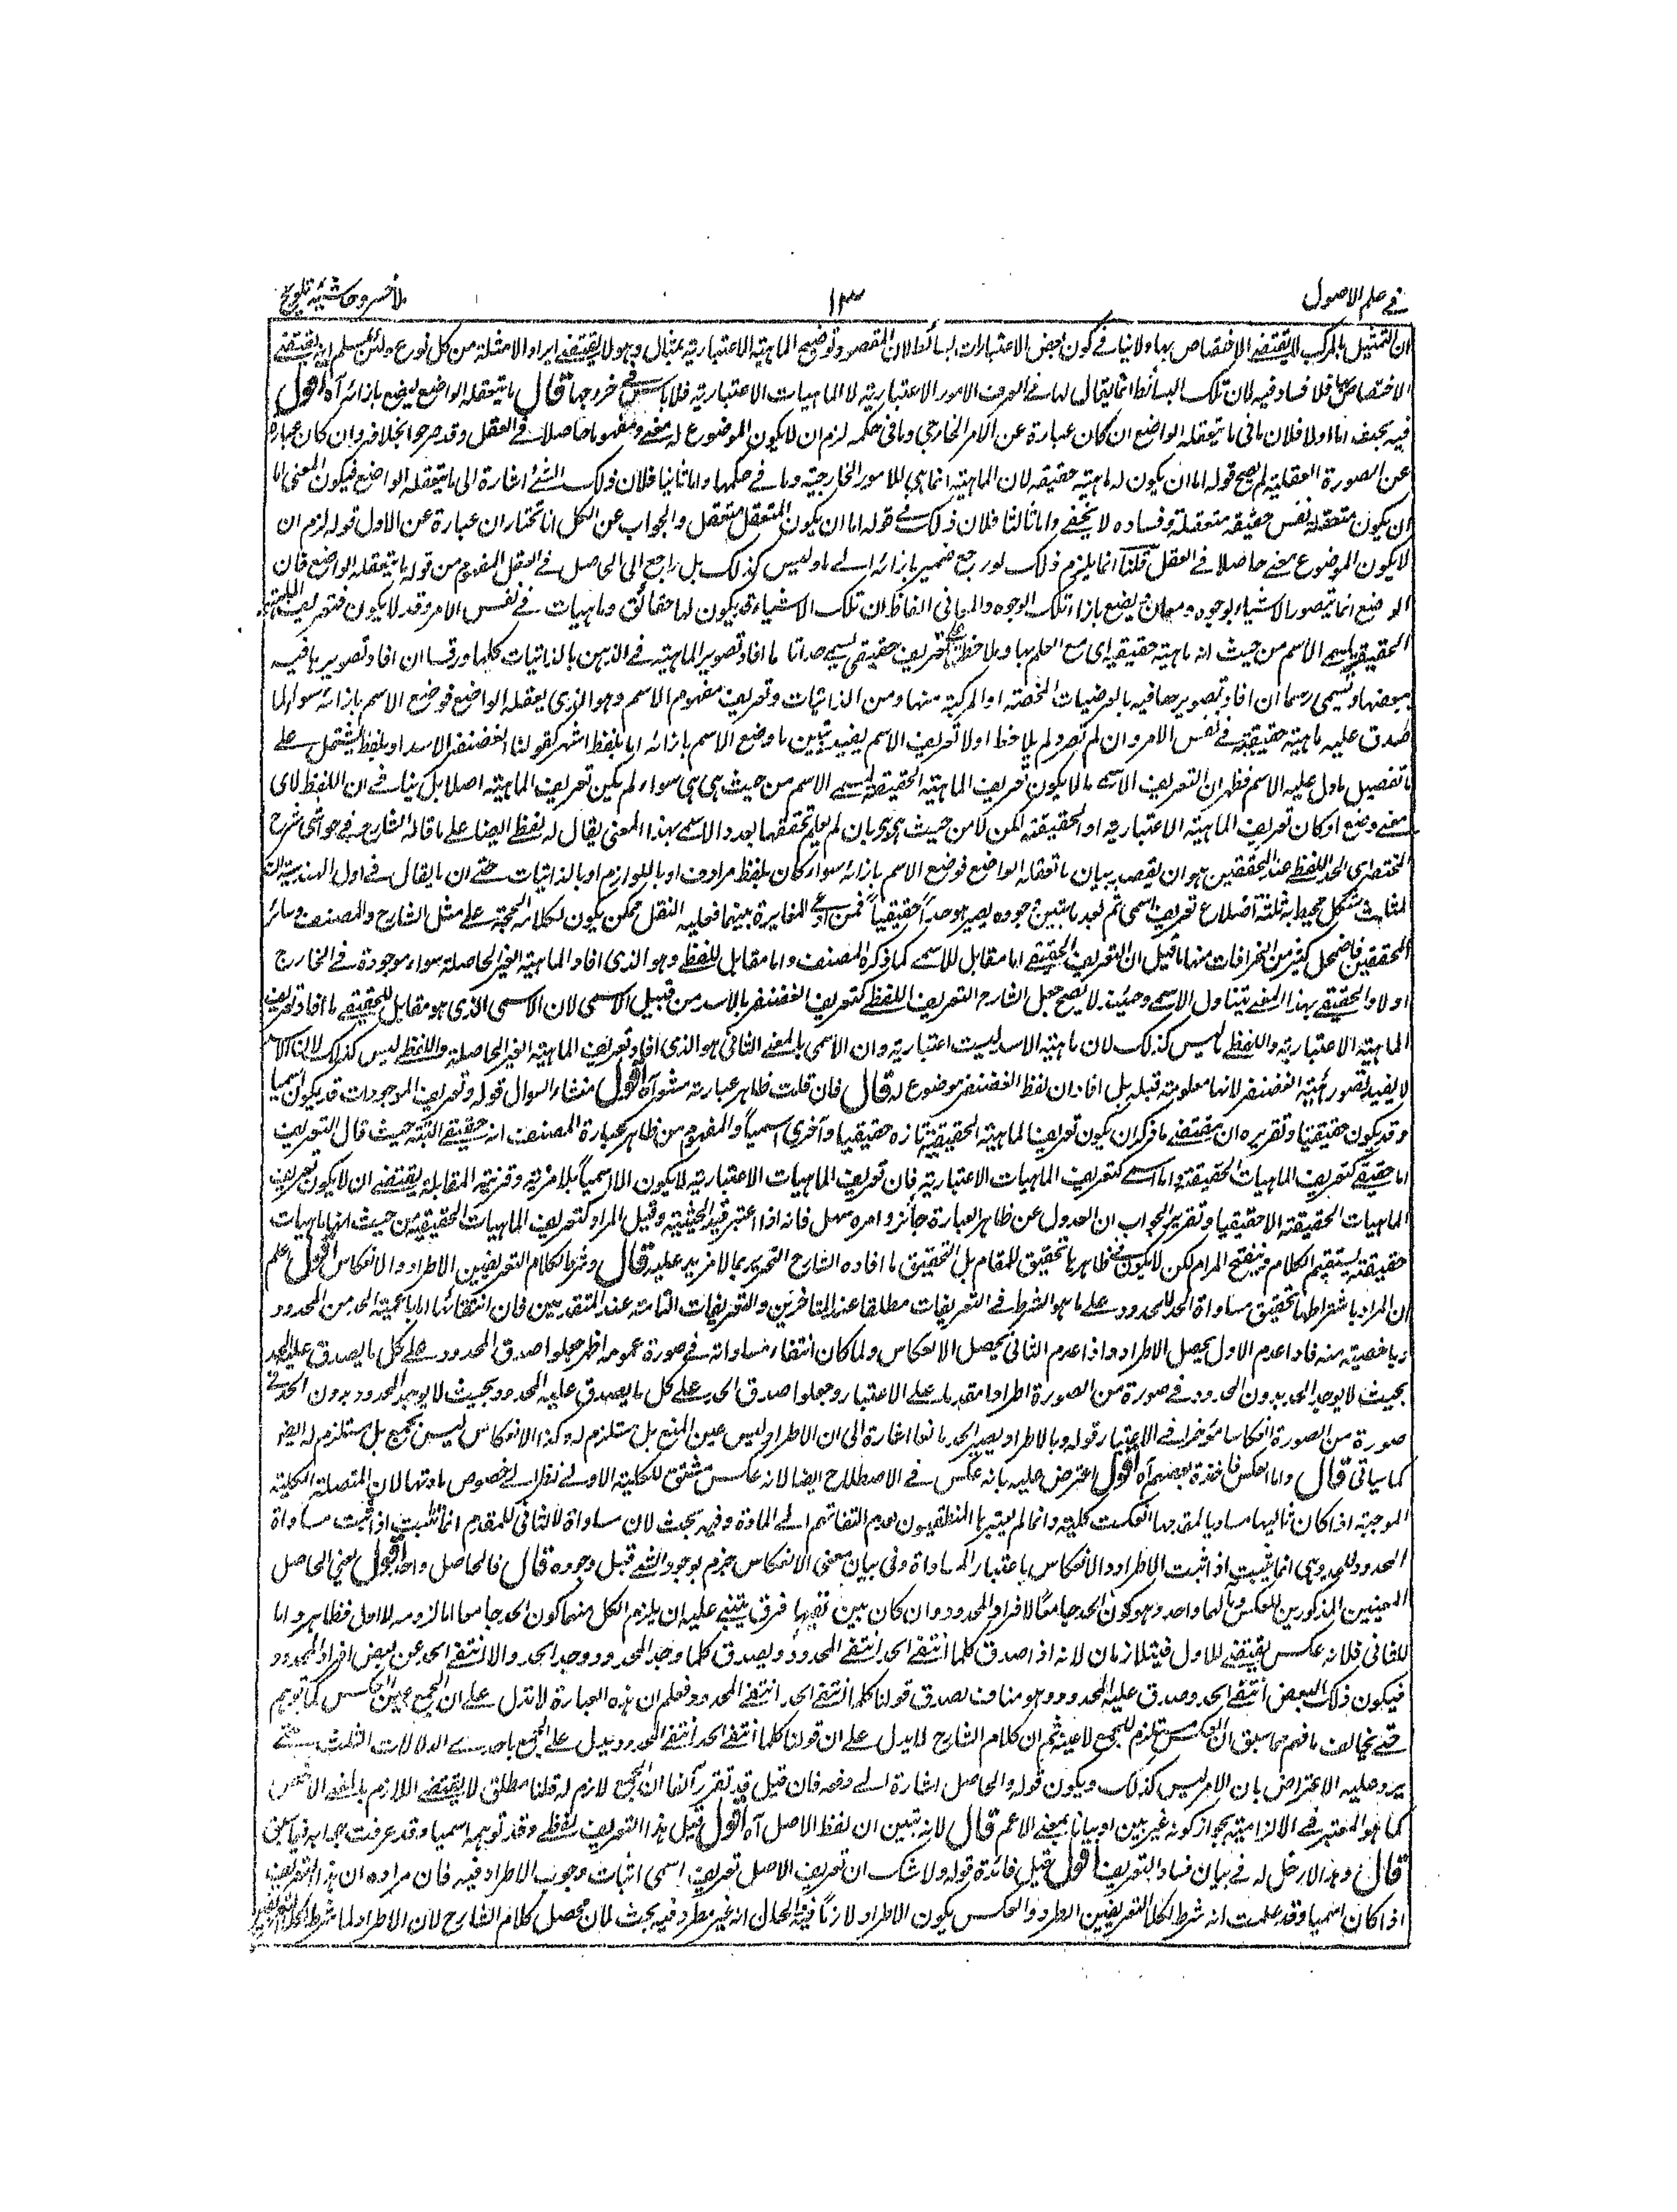 في علم الاصول
١٣
ملا خسرو حاشية تلويح
ان التمثيل بالمركب لا يقتضي الاختصاص بها ولا ينافي كون بعض الاعتبارات بسائط لان المقصود توضيح الماهية الاعتبارية بمثال وهو لا يقتضي ايراد الامثلة من كل نوع ولئن سلم انه يقتضي
الاختصاص بها فلا فساد فيه لان تلك البسائط انما يقال لها في العرف الامور الاعتبارية لا الماهيات الاعتبارية فلا بأس في خروجها قال ما يتعقله الواضع ليضع بازائه آه اقول
فيه بحث اما اولا فلان ما في ما يتعقله الواضع ان كان عبارة عن الامر الخارجي وما في حكمه لزم ان لا يكون الموضوع له معنى ومفهوما حاصلا في العقل وقد صرحوا بخلافه وان كان عبارة
عن الصورة العقلية لم يصح قوله اما ان يكون له ماهية حقيقة لان الماهية انما هي للامور الخارجية وما في حكمها واما ثانيا فلان ذلك الشئ اشارة الى ما يتعقله الواضع فيكون المعنى اما
ان يكون متعقله نفس حقيقة متعقلة وفساده لا يخفى واما ثالثا فلان ذلك في قوله اما ان يكون المتعقل متعقل والجواب عن الكل انا نختار ان عبارة عن الاول قوله لزم ان
لا يكون الموضوع معنى حاصلا في العقل قلنا انما يلزم ذلك لو رجع ضمير بازائه الى ما وليس كذلك بل راجع الى الحاصل في العقل المفهوم من قوله ما يتعقله الواضع فان
الواضع انما يتصور الاشياء بوجوه ومعان يضع بازاء تلك الوجوه والمعاني الفاظا ان تلك الاشياء قد يكون لها حقائق وماهيات في نفس الامر وقد لا يكون فتعريف الماهية
الحقيقية لمسمى الاسم من حيث انه ماهية حقيقية اي مع العلم بها وملاحظتها تعريف حقيقي يسمى حدا تاما ما افاد تصوير الماهية في الذهن بالذاتيات كلها ورقسا ان افاد تصويرها فيه
ببعضها ويسمى رسما ان افاد تصويرها فيه بالعرضيات المختصة او المركبة منها ومن الذاتيات وتعريف مفهوم الاسم وهو الذي يعقله الواضع فوضع الاسم بازائه سواء لما
صدق عليه ماهية حقيقية في نفس الامر وان لم تعلم ولم يلاحظ او لا تعريف الاسم يفيد تبيين ما وضع الاسم بازائه اما بلفظ اشهر كقولنا الغضنفر الاسد او بلفظ يشتمل على
تفصيل ما دل عليه الاسم فظهر ان التعريف الاسمي ما لا يكون تعريف الماهية الحقيقية لمسمى الاسم من حيث هي هي سواء لم يكن تعريف الماهية اصلا بل بيانا في ان اللفظ لاي
معنى وضع او كان تعريف الماهية الاعتبارية او الحقيقية لكن لا من حيث هي هي بان لم يعلم تحققها بعد والاسمي بهذا المعنى يقال له لفظي ايضا على ما قاله الشارح في حواشي شرح
المختصر اي الحد اللفظي عند المحققين هو ان يقصد بيان ما تعقله الواضع فوضع الاسم بازائه سواء كان بلفظ مرادف او باللوازم او بالذاتيات حتى ان ما يقال في اول الهندسة ان
المثلث شكل محيط به ثلثة اضلاع تعريف اسمي ثم بعد ما يتبين وجوده يصير هو حدا حقيقيا فمن ادعى المغايرة بينهما فعليه النقل ممكن يكون لكلامه الحجة على مثل الشارح والمصنف وسائر
المحققين فاضمحل كثير من الخرافات منها ما قيل ان التعريف الحقيقي اما مقابل للاسمي كما ذكره المصنف واما مقابل للفظي وهو الذي افاد الماهية الغير الحاصلة سواء موجودة في الخارج
اولا والحقيقي بهذا المعنى يتناول الاسمي وحينئذ لا يصح جعل الشارح التعريف اللفظي كتعريف الغضنفر بالاسد من قبيل الاسمي لان الاسمي الذي هو مقابل للحقيقي ما افاد تعريف
الماهية الاعتبارية واللفظي ليس كذلك لان ماهية الاسد ليست اعتبارية وان الاسمي بالمعنى الثاني هو الذي افاد تعريف الماهية الغير الحاصلة واللفظي ليس كذلك لان الاسد
لا يفيد تصور ماهية الغضنفر لانها معلومة قبله بل افاد ان لفظ الغضنفر موضوع له قال فان قلت ظاهر عبارته مشعر آه اقول منشاء السوال قوله وتعريف الموجودات قد يكون اسميا
وقد يكون حقيقيا وتقريره ان مقتضى ما ذكر ان يكون تعريف الماهية الحقيقية تارة حقيقيا واخرى اسميا والمفهوم من ظاهر عبارة المصنف انه حقيقي البتة حيث قال التعريف
اما حقيقي كتعريف الماهيات الحقيقية واما اسمي كتعريف الماهيات الاعتبارية فان تعريف الماهيات الاعتبارية لا يكون الا اسميا بلا مرية وقرينة المقابلة يقتضي ان لا يكون تعريف
الماهيات الحقيقية الا حقيقيا وتقرير الجواب ان العدول عن ظاهر العبارة جائز وامره سهل فانه اذا اعتبر قيد الحيثية وقيل المراد كتعريف الماهيات الحقيقية من حيث انها ماهيات
حقيقية يستقيم الكلام ويتضح المرام لكن لا يكون في ظاهرها تحقيق للمقام بل التحقيق ما افاده الشارح النحرير بما لا مزيد عليه قال وشرط لكلام التعريفين الاطراد والانعكاس اقول اعلم
ان المراد باشتراطهما تحقيق مساواة الحد للمحدود على ما هو الشرط في التعريفات مطلقا عند المتأخرين والتعريفات التامة عند المتقدمين فان انتفائها اما باعمية الحد من المحدود
وباخصيته منه فاذا عدم الاول يحصل الاطراد واذا عدم الثاني يحصل الانعكاس ولما كان انتفاء مساواته في صورة عمومه اظهر جعلوا صدق المحدود على كل ما يصدق عليه الحد
بحيث لا يوجد الحد بدون المحدود في صورة من الصورة اطرادا مقدما على الاعتبار وجعلوا صدق الحد على كل ما يصدق عليه المحدود بحيث لا يوجد المحدود بدون الحد في
صورة من الصورة انعكاسا مؤخرا في الاعتبار قوله وبالاطراد يصير الحد مانعا اشارة الى ان الاطراد ليس عين المنع بل مستلزم له وكذا الانعكاس ليس بجمع بل مستلزم له ايضا
كما سياتي قال واما العكس فاخذه بعضهم آه اقول اعترض عليه بانه عكس في الاصطلاح ايضا لانه عكس مستوي للكلية الاولى نظرا الى خصوص مادتها لان المتصلة الكلية
الموجبة اذا كان تاليها مساويا لمقدمها انعكست كلية وانما لم يعتبرها المنطقيون لعدم التفاتهم الى المادة وفيه بحث لان مساواة التالي للمقدم انما تثبت اذا ثبت مساواة
المحدود للحد وهي انما يثبت اذا ثبت الاطراد والانعكاس باعتبار المساواة وفي بيان معنى الانعكاس جزم بوجود الشئ قبل وجوده قال فالحاصل واحد اقول يعني الحاصل
المعنيين المذكورين للعكس ومآلهما واحد وهو كون الحد جامعا لافراد المحدود وان كان بين نفيهما فرق يتنبه عليه ان يلزم الكل منهما كون الحد جامعا اما لزومه للاول فظاهر واما
للثاني فلانه عكس نقيضي للاول فيتلازمان لانه اذا صدق كلما انتفى الحد انتفى المحدود ويصدق كلما وجد المحدود وجد الحد والا انتفى الحد عن بعض افراد المحدود
فيكون ذلك البعض انتفى الحد وصدق عليه المحدود وهو مناف لصدق قولنا كلما انتفى الحد انتفى المحدود فعلم ان هذه العبارة لا تدل على ان الجمع عين العكس كما توهم
حتى يخالف ما فهم مما سبق ان العكس مستلزم للجمع لا عينه ثم ان كلام الشارح لا يدل على ان قولنا كلما انتفى الحد انتفى المحدود يدل على الجمع باحدى الدلالات الثلث حتى
يرد عليه الاعتراض بان الامر ليس كذلك ويكون قوله والحاصل اشارة الى دفعه فان قيل قد تقرر آنفا ان الجمع لازم له قلنا مطلق لا يقتضي اللازم بالمعنى الاخص
كما هو المعتبر في الالزامية بجواز كونه غير بين او بيانا بمعنى الاعم قال لانه تبين ان لفظ الاصل آه اقول قيل هذا التعريف لفظي وقد توهمه اسميا وقد عرفت جوابه فيما سبق
قال وهذا لا دخل له في بيان فساد التعريف اقول قيل فائدة قوله ولا شك ان تعريف الاصل تعريف اسمي اثبات وجوب الاطراد فيه فان مراده ان هذا التعريف
اذا كان اسميا وقد علمت انه شرط لكلا التعريفين الطرد والعكس يكون الاطراد لازما فيه الحال انه غير مطرد فيه بحث لان محصل كلام الشارح لان الاطراد لما شرط لكلا التعريفين